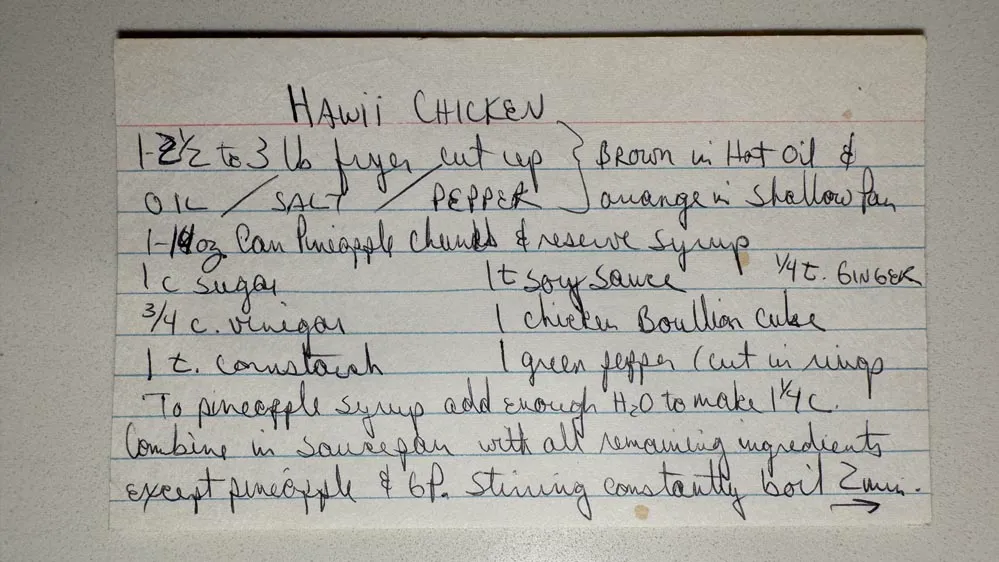 HAWII CHICKEN
1-2½ to 3 lb fryer cut up } BROWN in Hot Oil &
OIL / SALT / PEPPER arrange in Shallow Pan
1- oz Can Pineapple chunks & reserve syrup
1 c sugar 1 t soy sauce ¼ t. GINGER
3/4 c. vinegar 1 chicken Boullion cube
1 t. cornstarch 1 green pepper (cut in rings
To pineapple syrup add enough H2O to make 1¼ c.
Combine in saucepan with all remaining ingredients
except pineapple & GP. Stirring constantly boil 2 min.
→